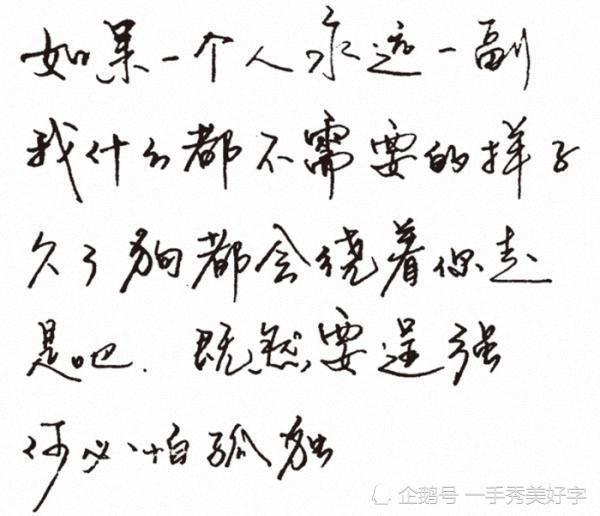 如果一个人永远一副
我什么都不需要的样子
久了狗都会绕着你走
是吧.既然要逞强
何必怕孤独
企鹅号 一手秀美好字